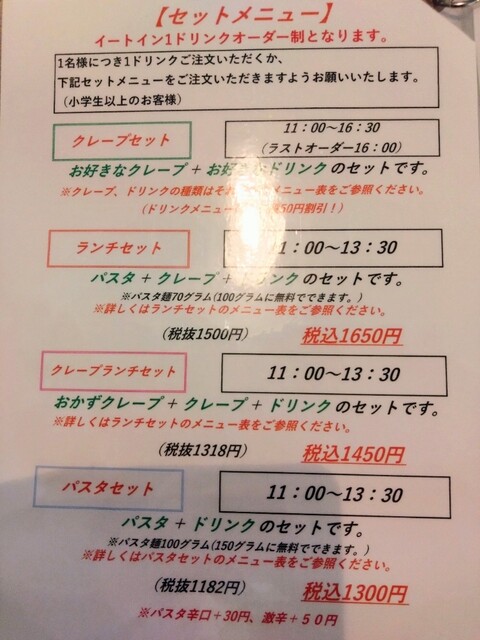 【セットメニュー】
イートイン1ドリンクオーダー制となります。
1名様につき1ドリンクご注文いただくか、
下記セットメニューをご注文いただきますようお願いいたします。
（小学生以上のお客様）
クレープセット
11：00～16：30
（ラストオーダー16：00）
お好きなクレープ＋お好きなドリンクのセットです。
※クレープ、ドリンクの種類はそれ メニュー表をご参照ください。
（ドリンクメニュー 50円割引！）
ランチセット
11：00～13：30
パスタ＋クレープ＋ドリンクのセットです。
※パスタ麺70グラム(100グラムに無料でできます。)
※詳しくはランチセットのメニュー表をご参照ください。
（税抜1500円） 税込1650円
クレープランチセット
11：00～13：30
おかずクレープ＋クレープ＋ドリンクのセットです。
※詳しくはランチセットのメニュー表をご参照ください。
（税抜1318円） 税込1450円
パスタセット
11：00～13：30
パスタ＋ドリンクのセットです。
※パスタ麺100グラム(150グラムに無料でできます。)
※詳しくはパスタセットのメニュー表をご参照ください。
（税抜1182円） 税込1300円
※パスタ辛口+30円、激辛+50円